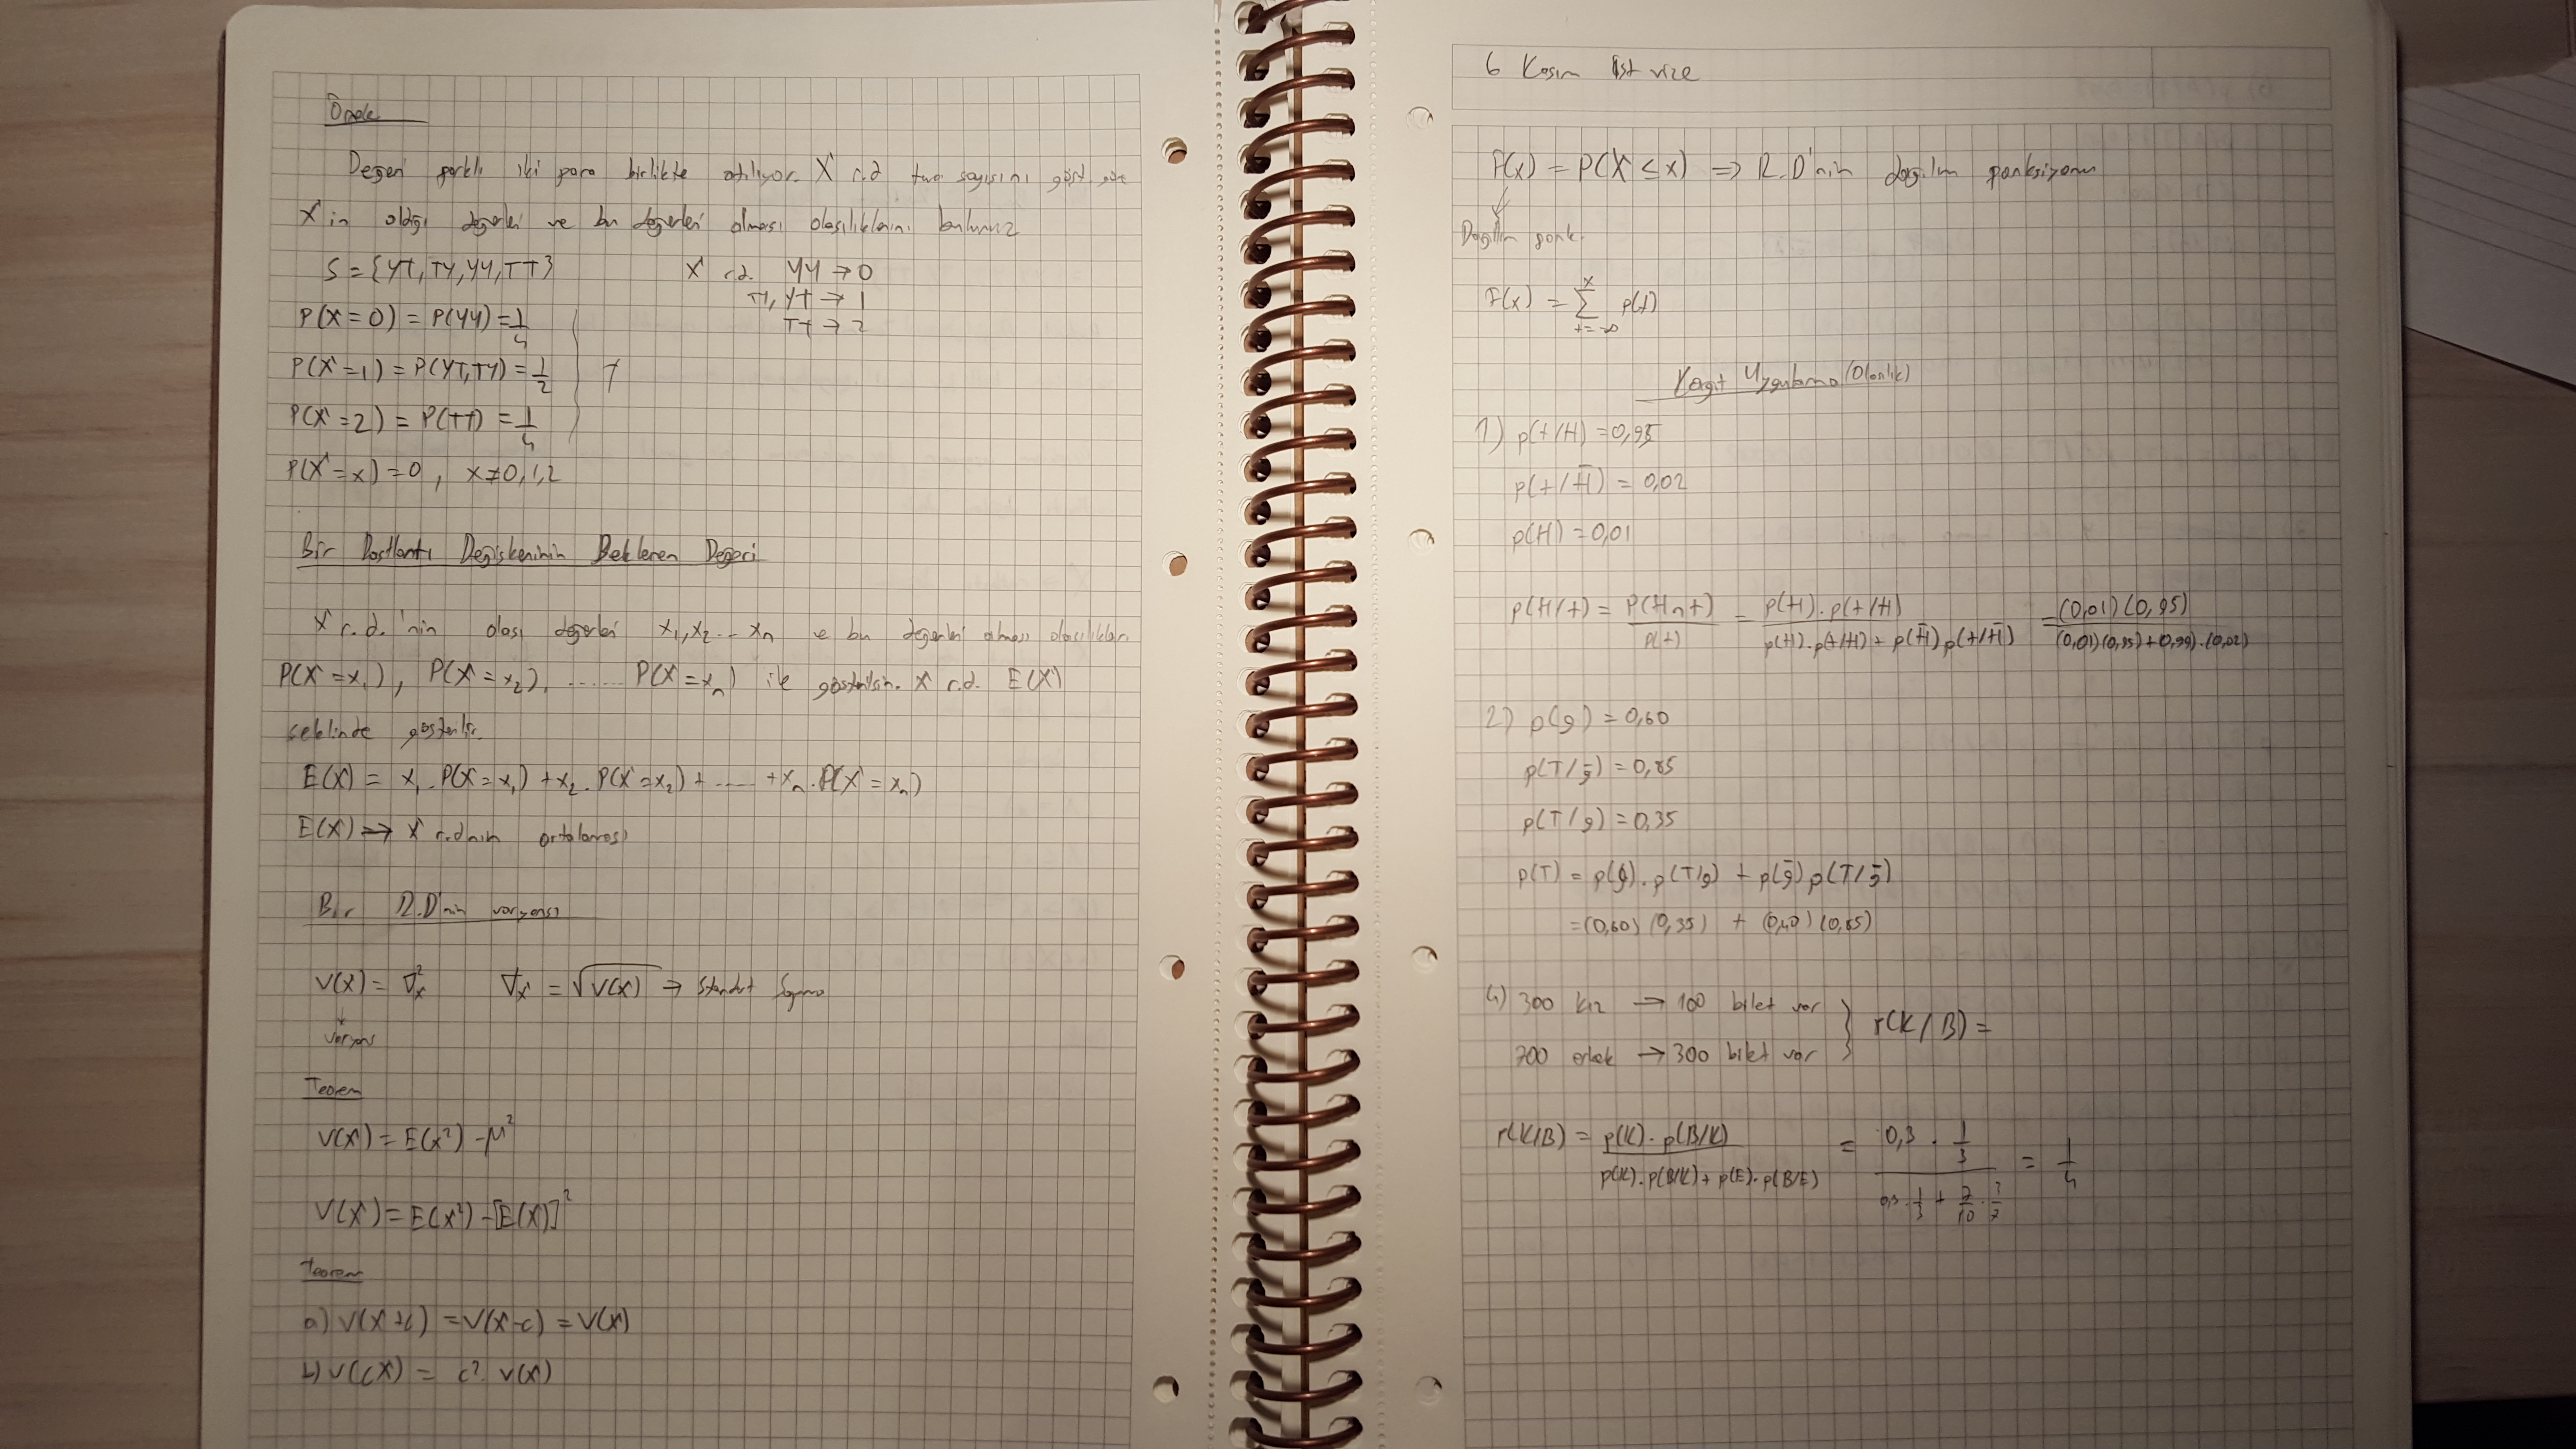 Örnek
Değeri farklı iki para birlikte atılıyor. X r.d tura sayısını göst. göre
X in aldığı değerleri ve bu değerleri alması olasılıklarını bulunuz
S = {YT, TY, YY, TT}
X r.d. YY → 0
TY, YT → 1
TT → 2
P(X=0) = P(YY) = 1/4
P(X=1) = P(YT, TY) = 1/2
P(X=2) = P(TT) = 1/4
P(X=x) = 0 , x≠0,1,2
Bir Rastlantı Değişkeninin Beklenen Değeri
X r.d.'nin olası değerleri x₁, x₂ ... xn ve bu değerleri alması olasılıkları
P(X=x₁), P(X=x₂), ...... P(X=xn) ile gösterilsin. X r.d. E(X)
şeklinde gösterilir.
E(X) = x₁.P(X=x₁) + x₂.P(X=x₂) + ..... + xn.P(X=xn)
E(X) → X r.dnın ortalaması
Bir R.D'nin varyansı
V(X) = ∇x² ∇x = √V(X) → Standart Sapma
varyans
Teorem
V(X) = E(x²) - μ²
V(X) = E(X²) - [E(X)]²
Teorem
a) V(X+c) = V(X-c) = V(X)
b) V(cX) = c². V(X)
6 Kasım ist vize
F(x) = P(X ≤ x) ⇒ R.D'nin dağılım fonksiyonu
Dağılım fonk.
F(x) = Σ p(t)
x
t=-∞
Kağıt Uygulama (Olasılık)
1) p(+/H) = 0,95
p(+/H̄) = 0,02
p(H) = 0,01
p(H/+) = P(H∩+)/p(+) = p(H).p(+/H) / p(H).p(+/H) + p(H̄)p(+/H̄) = (0,01)(0,95) / (0,01)(0,95)+(0,99).(0,02)
2) p(g) = 0,60
p(T/ḡ) = 0,85
p(T/g) = 0,35
p(T) = p(g).p(T/g) + p(ḡ)p(T/ḡ)
= (0,60)(0,35) + (0,40)(0,85)
4) 300 kız → 100 bilet var
700 erkek → 300 bilet var
P(K/B) =
P(K/B) = p(K).p(B/K) / p(K).p(B/K) + p(E).p(B/E) = 0,3 . 1/3 / 0,3 . 1/3 + 7/10 . 3/7 = 1/4